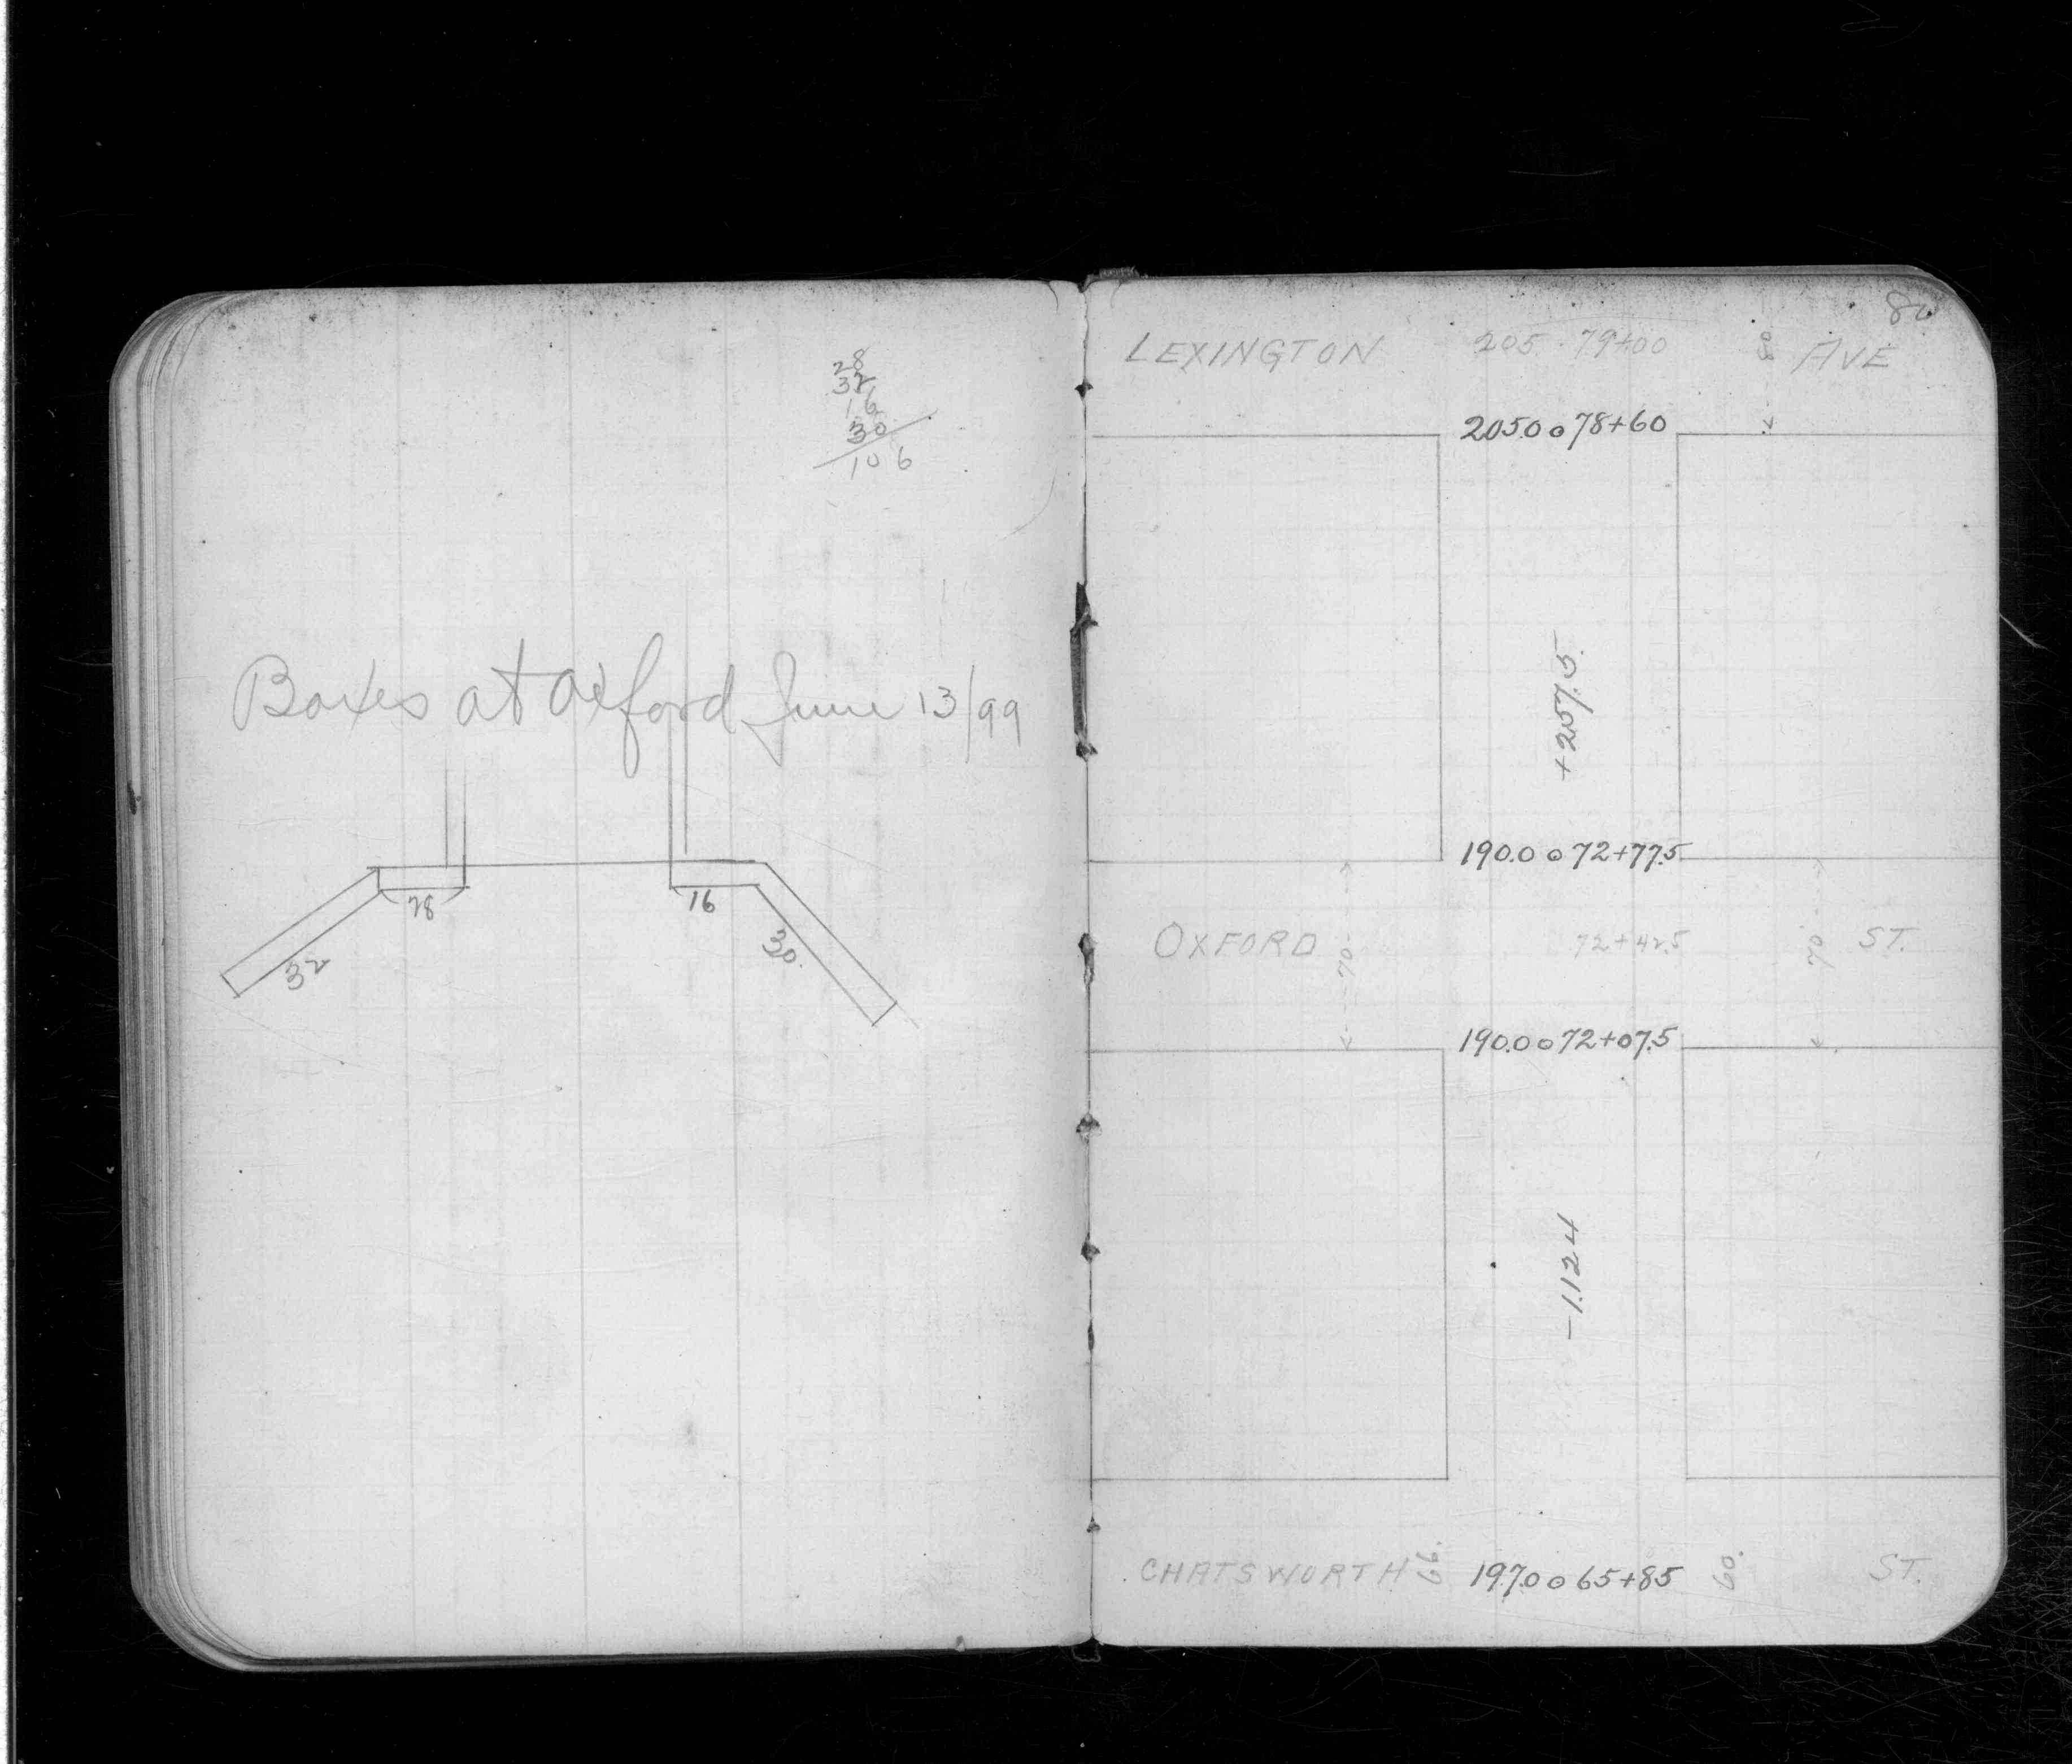 28
32
16
30
106
Boxes at Oxford June 13/99
28
16
32
30
80
LEXINGTON 205 79+00 80 AVE
205.0 o 78+60
+257.5
190.0 o 72+77.5
OXFORD 70 72+42.5 70 ST.
190.0 o 72+07.5
-1.124
CHATSWORTH 66. 197.0 o 65+85 60. ST.